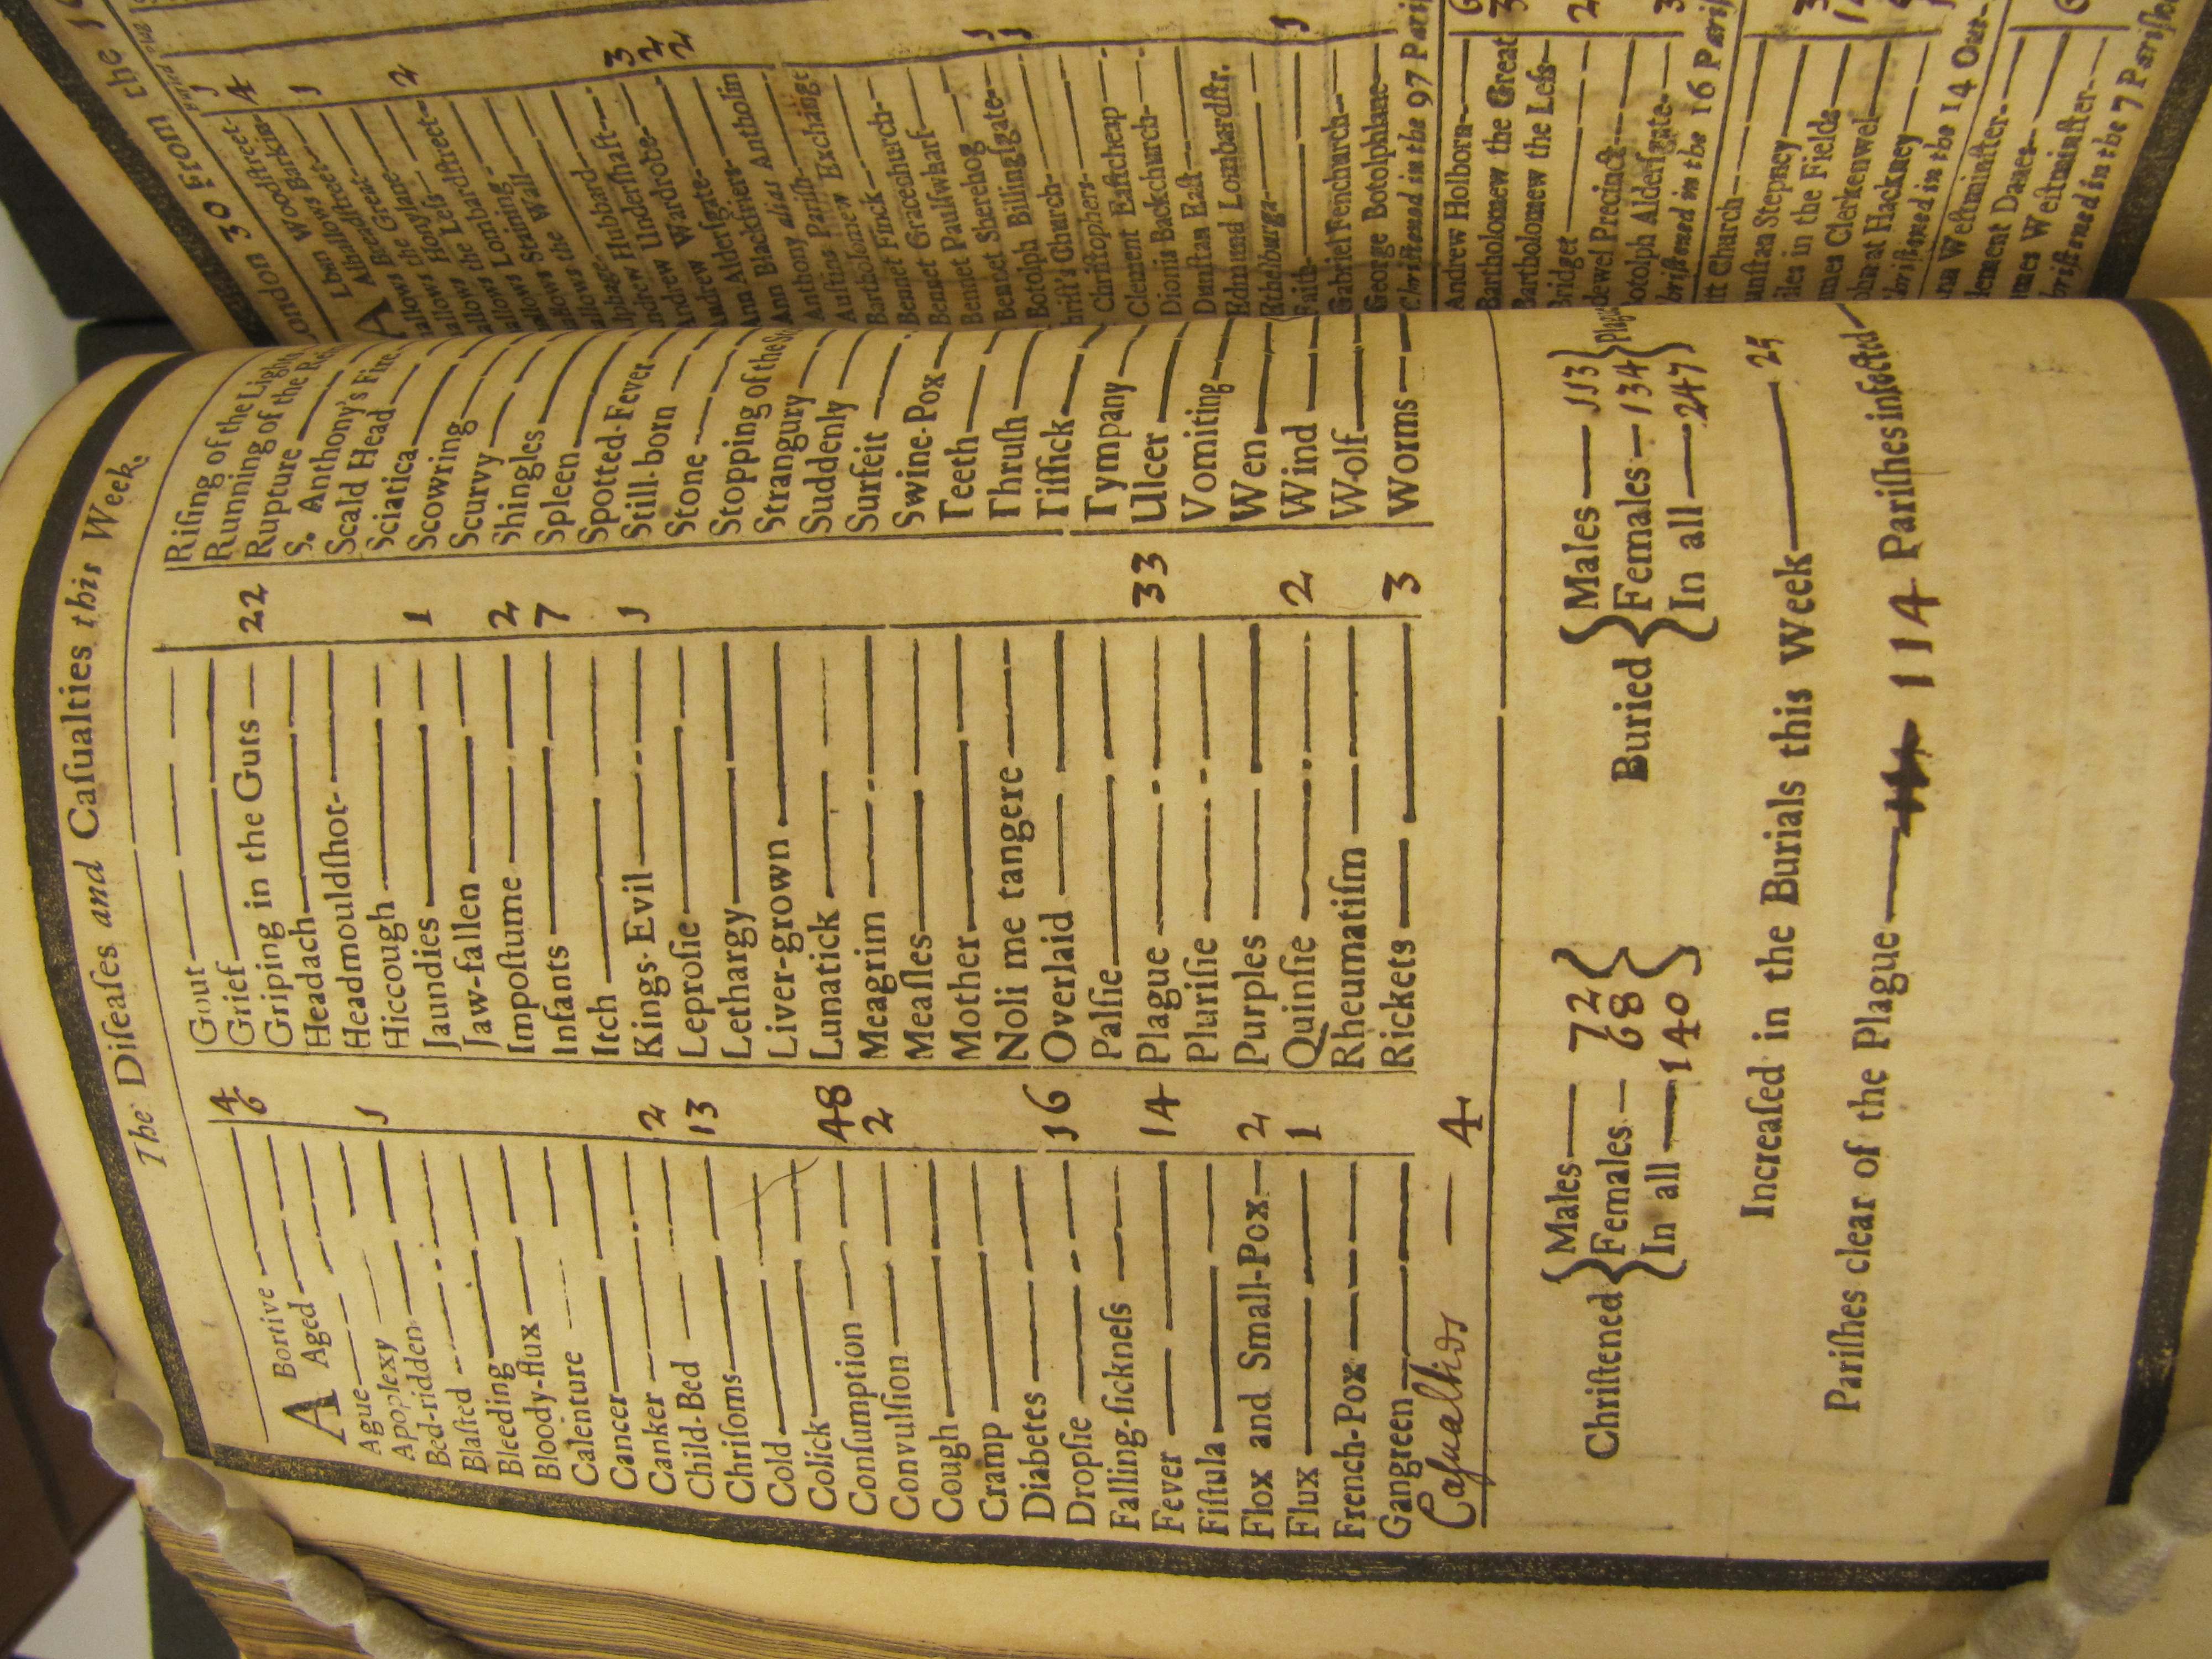 The Diſeaſes and Caſualties this Week.
A Bortive 4
Aged 6
Ague
Apoplexy 1
Bed-ridden
Blaſted
Bleeding
Bloody-flux
Calenture
Cancer
Canker 2
Child-Bed 13
Chriſoms
Cold
Colick
Conſumption 48
Convulſion 2
Cough
Cramp
Diabetes
Dropſie 16
Falling-ſickneſs
Fever 14
Fiſtula
Flox and Small-Pox 2
Flux 1
French-Pox
Gangreen
Caſualtids — 4
Gout
Grief
Griping in the Guts 22
Headach
Headmouldſhot
Hiccough
Jaundies 1
Jaw-fallen
Impoſtume 2
Infants 7
Itch
Kings-Evil 1
Leproſie
Lethargy
Liver-grown
Lunatick
Meagrim
Meaſles
Mother
Noli me tangere
Overlaid
Palſie
Plague 33
Pluriſie
Purples
Quinſie 2
Rheumatiſm
Rickets 3
Riſing of the
Running of the
Rupture
S. Anthony's Fire
Scald Head
Sciatica
Scowring
Scurvy
Shingles
Spleen
Spotted-Fever
Still-born
Stone
Stopping of the
Strangury
Suddenly
Surfeit
Swine-Pox
Teeth
Thruſh
Tiſſick
Tympany
Ulcer
Vomiting
Wen
Wind
Wolf
Worms
Chriſtened { Males — 72
Females — 68
In all — 140 }
Buried { Males — 113
Females — 134
In all — 247 }
Increaſed in the Burials this Week — 25
Pariſhes clear of the Plague — 114 Pariſhes infected
London 30 From the
Woodſtreet 1
lhallows Barking 4
Lhallows Breadſtreet 1
Great
allows Honylane 2
allows the Leſs
allows Lombardſtreet
allows Staining
allows the Wall
Hubbard
Andrew Underſhaft 3
Andrew Wardrobe 2
Ann Alderſgate 2
Ann Blackfriers
Anthony alias Antholin
Auſtins Pariſh
Bartholomew Exchange
Bennet Finck
Bennet Gracechurch
Bennet Paulſwharf
Bennet Sherehog
Botolph Billingſgate 1
Chriſt's Church 1
Chriſtophers
Clement Eaſtcheap
Dionis Backchurch
Dunſtan Eaſt
Edmund Lombardſtr.
Ethelburga
Faith 1
Gabriel Fenchurch
George Botolphlane
Chriſtened in the 97 Pariſ
Andrew Holborn 6
Bartholomew the Great 3
Bartholomew the Leſs
Bridget 2
dewel Precinct
Botolph Alderſgate 3
hriſtened in the 16 Pariſ
iſt Church
unſtan Stepney 3
iles in the Fields
mes Clerkenwel
ohn at Hackney
hriſtened in the 14 Out-
Weſtminſter
lement Danes 6
mes Weſtminſter
hriſtened in the 7 Pariſhes